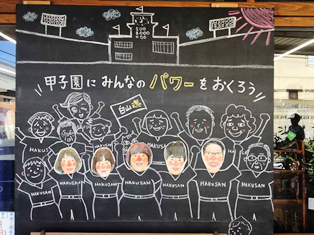 甲子園にみんなのパワーをおくろう
白山
HAKUSAN
HAKUSAN
HAKUSAN
HAKUSAN
HAKUSAN
HAKUSAN